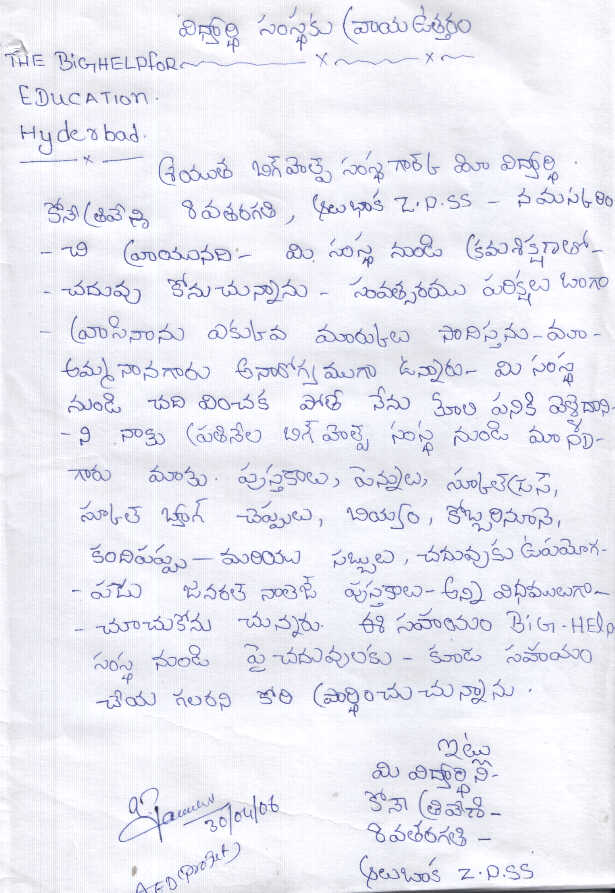 విద్యార్థి సంస్థకు వ్రాయు ఉత్తరం
THE BiGHELPfOR
EDUCATION.
Hyderbad.
శ్రీయుత బిగ్ హెల్ప్ సంస్థ గార్కి మీ విద్యార్థి.
కోసా త్రివేణి 8వతరగతి, ఆలుబాక Z.P.SS - నమస్కరిం
- చి వ్రాయునది:- మి. సంస్థ నుండి క్రమశిక్షగాతో -
- చదువు కోనుచున్నాను - సంవత్సరము పరిక్షలు బాగా
- వ్రాసినాను ఎకుకవ మారుకులు సాదిస్తను - మా
అమ్మ నానగారు అనారోగ్యముగా ఉన్నారు - మి సంస్థ
నుండి చదివించక పోతే నేను కూలి పనికి వెళ్లేదాని-
- ని నాకు ప్రతినేల బిగ్ హెల్ప్ సంస్థ నుండి
గారు మాకు. పుస్తకాలు, పెన్నులు, స్కూల్ డ్రస్,
స్కూల్ బ్యాగ్ చెప్పులు, బియ్యం, కోబ్బరినూనె,
కందిపప్పు - మరియు సబ్బులు, చదువుకు ఉపయోగ-
- పడు జనరల్ నాలెజ్ పుస్తకాలు - అన్ని విధములుగా -
- చూచుకోను చున్నరు. ఈ సహాయం BiG-HELp
సంస్థ నుండి పై చదువులకు - కూడ సహాయం
చేయ గలరని కోరి ప్రార్థించు చున్నాను.
ఇట్లు
మి విద్యార్థిని-
కోసా త్రివేణి -
8వతరగతి -
ఆలుబాక Z.P.SS
30/04/06